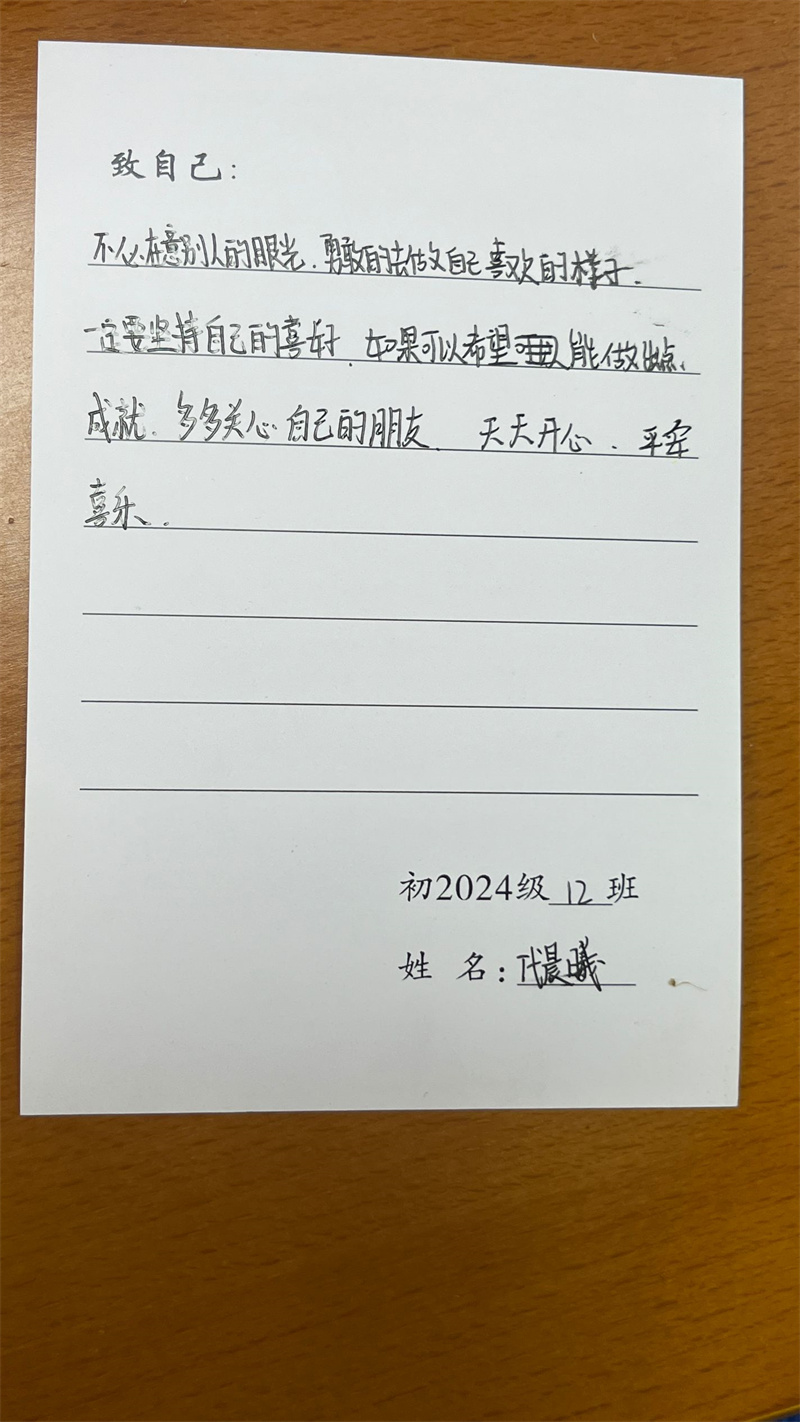 致自己：
不必在意别人的眼光.勇敢的去做自己喜欢的样子.
一定要坚持自己的喜好.如果可以希望能做出点、
成就.多多关心自己的朋友.天天开心.平安
喜乐..
初2024级12班
姓 名：代晨曦